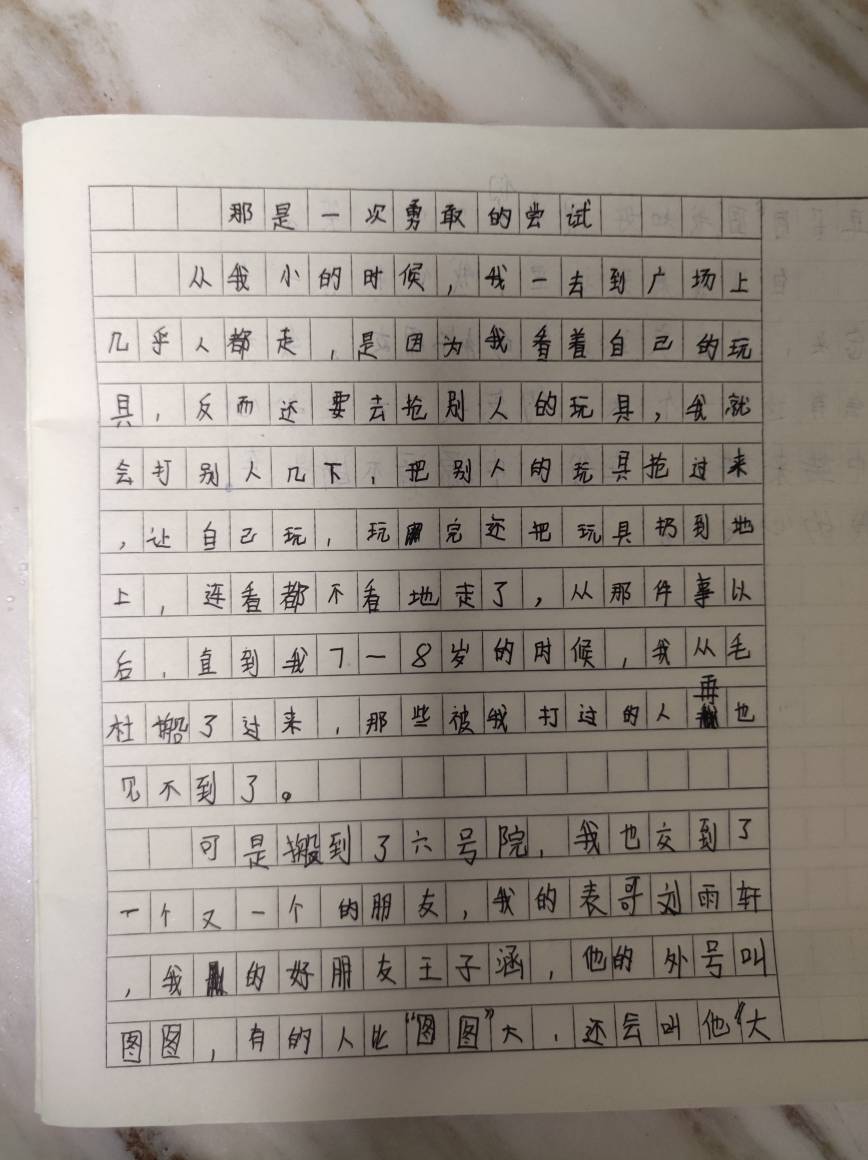 那是一次勇敢的尝试
从我小的时候，我一去到广场上
几乎人都走，是因为我看着自己的玩
具，反而还要去抢别人的玩具，我就
会打别人几下，把别人的玩具抢过来
，让自己玩，玩完还把玩具扔到地
上，连看都不看地走了，从那件事以
后，直到我7一8岁的时候，我从毛
杜搬了过来，那些被我打过的人再也
见不到了。
可是搬到了六号院，我也交到了
一个又一个的朋友，我的表哥刘雨轩
，我的好朋友王子涵，他的外号叫
图图，有的人比“图图”大，还会叫他“大